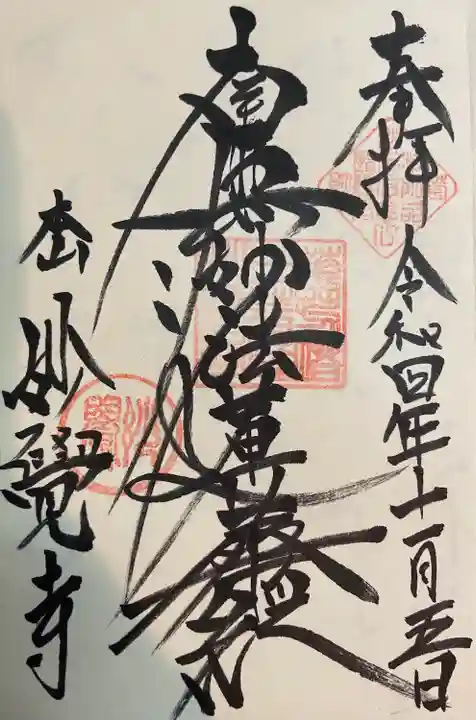 奉拝 令和四年十一月五日
南無妙法蓮華経
本山 妙覺寺